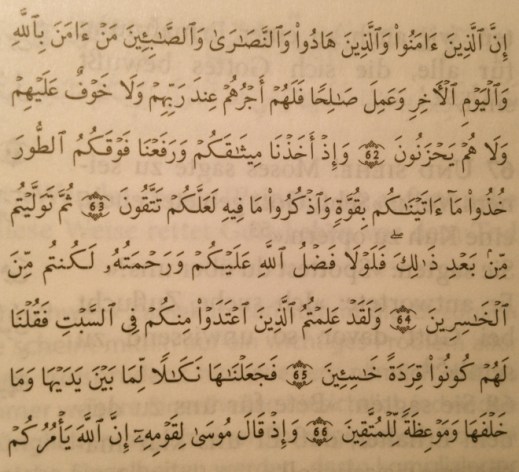 إِنَّ ٱلَّذِينَ ءَامَنُوا۟ وَٱلَّذِينَ هَادُوا۟ وَٱلنَّصَـٰرَىٰ وَٱلصَّـٰبِـِٔينَ مَنْ ءَامَنَ بِٱللَّهِ
وَٱلْيَوْمِ ٱلْأَخِرِ وَعَمِلَ صَـٰلِحًا فَلَهُمْ أَجْرُهُمْ عِندَ رَبِّهِمْ وَلَا خَوْفٌ عَلَيْهِمْ
وَلَا هُمْ يَحْزَنُونَ 62 وَإِذْ أَخَذْنَا مِيثَـٰقَكُمْ وَرَفَعْنَا فَوْقَكُمُ ٱلطُّورَ
خُذُوا۟ مَآ ءَاتَيْنَـٰكُم بِقُوَّةٍ وَٱذْكُرُوا۟ مَا فِيهِ لَعَلَّكُمْ تَتَّقُونَ 63 ثُمَّ تَوَلَّيْتُم
مِّنۢ بَعْدِ ذَٰلِكَ ۖ فَلَوْلَا فَضْلُ ٱللَّهِ عَلَيْكُمْ وَرَحْمَتُهُۥ لَكُنتُم مِّنَ
ٱلْخَـٰسِرِينَ 64 وَلَقَدْ عَلِمْتُمُ ٱلَّذِينَ ٱعْتَدَوْا۟ مِنكُمْ فِى ٱلسَّبْتِ فَقُلْنَا
لَهُمْ كُونُوا۟ قِرَدَةً خَـٰسِـِٔينَ 65 فَجَعَلْنَـٰهَا نَكَـٰلًا لِّمَا بَيْنَ يَدَيْهَا وَمَا
خَلْفَهَا وَمَوْعِظَةً لِّلْمُتَّقِينَ 66 وَإِذْ قَالَ مُوسَىٰ لِقَوْمِهِۦٓ إِنَّ ٱللَّهَ يَأْمُرُكُمْ